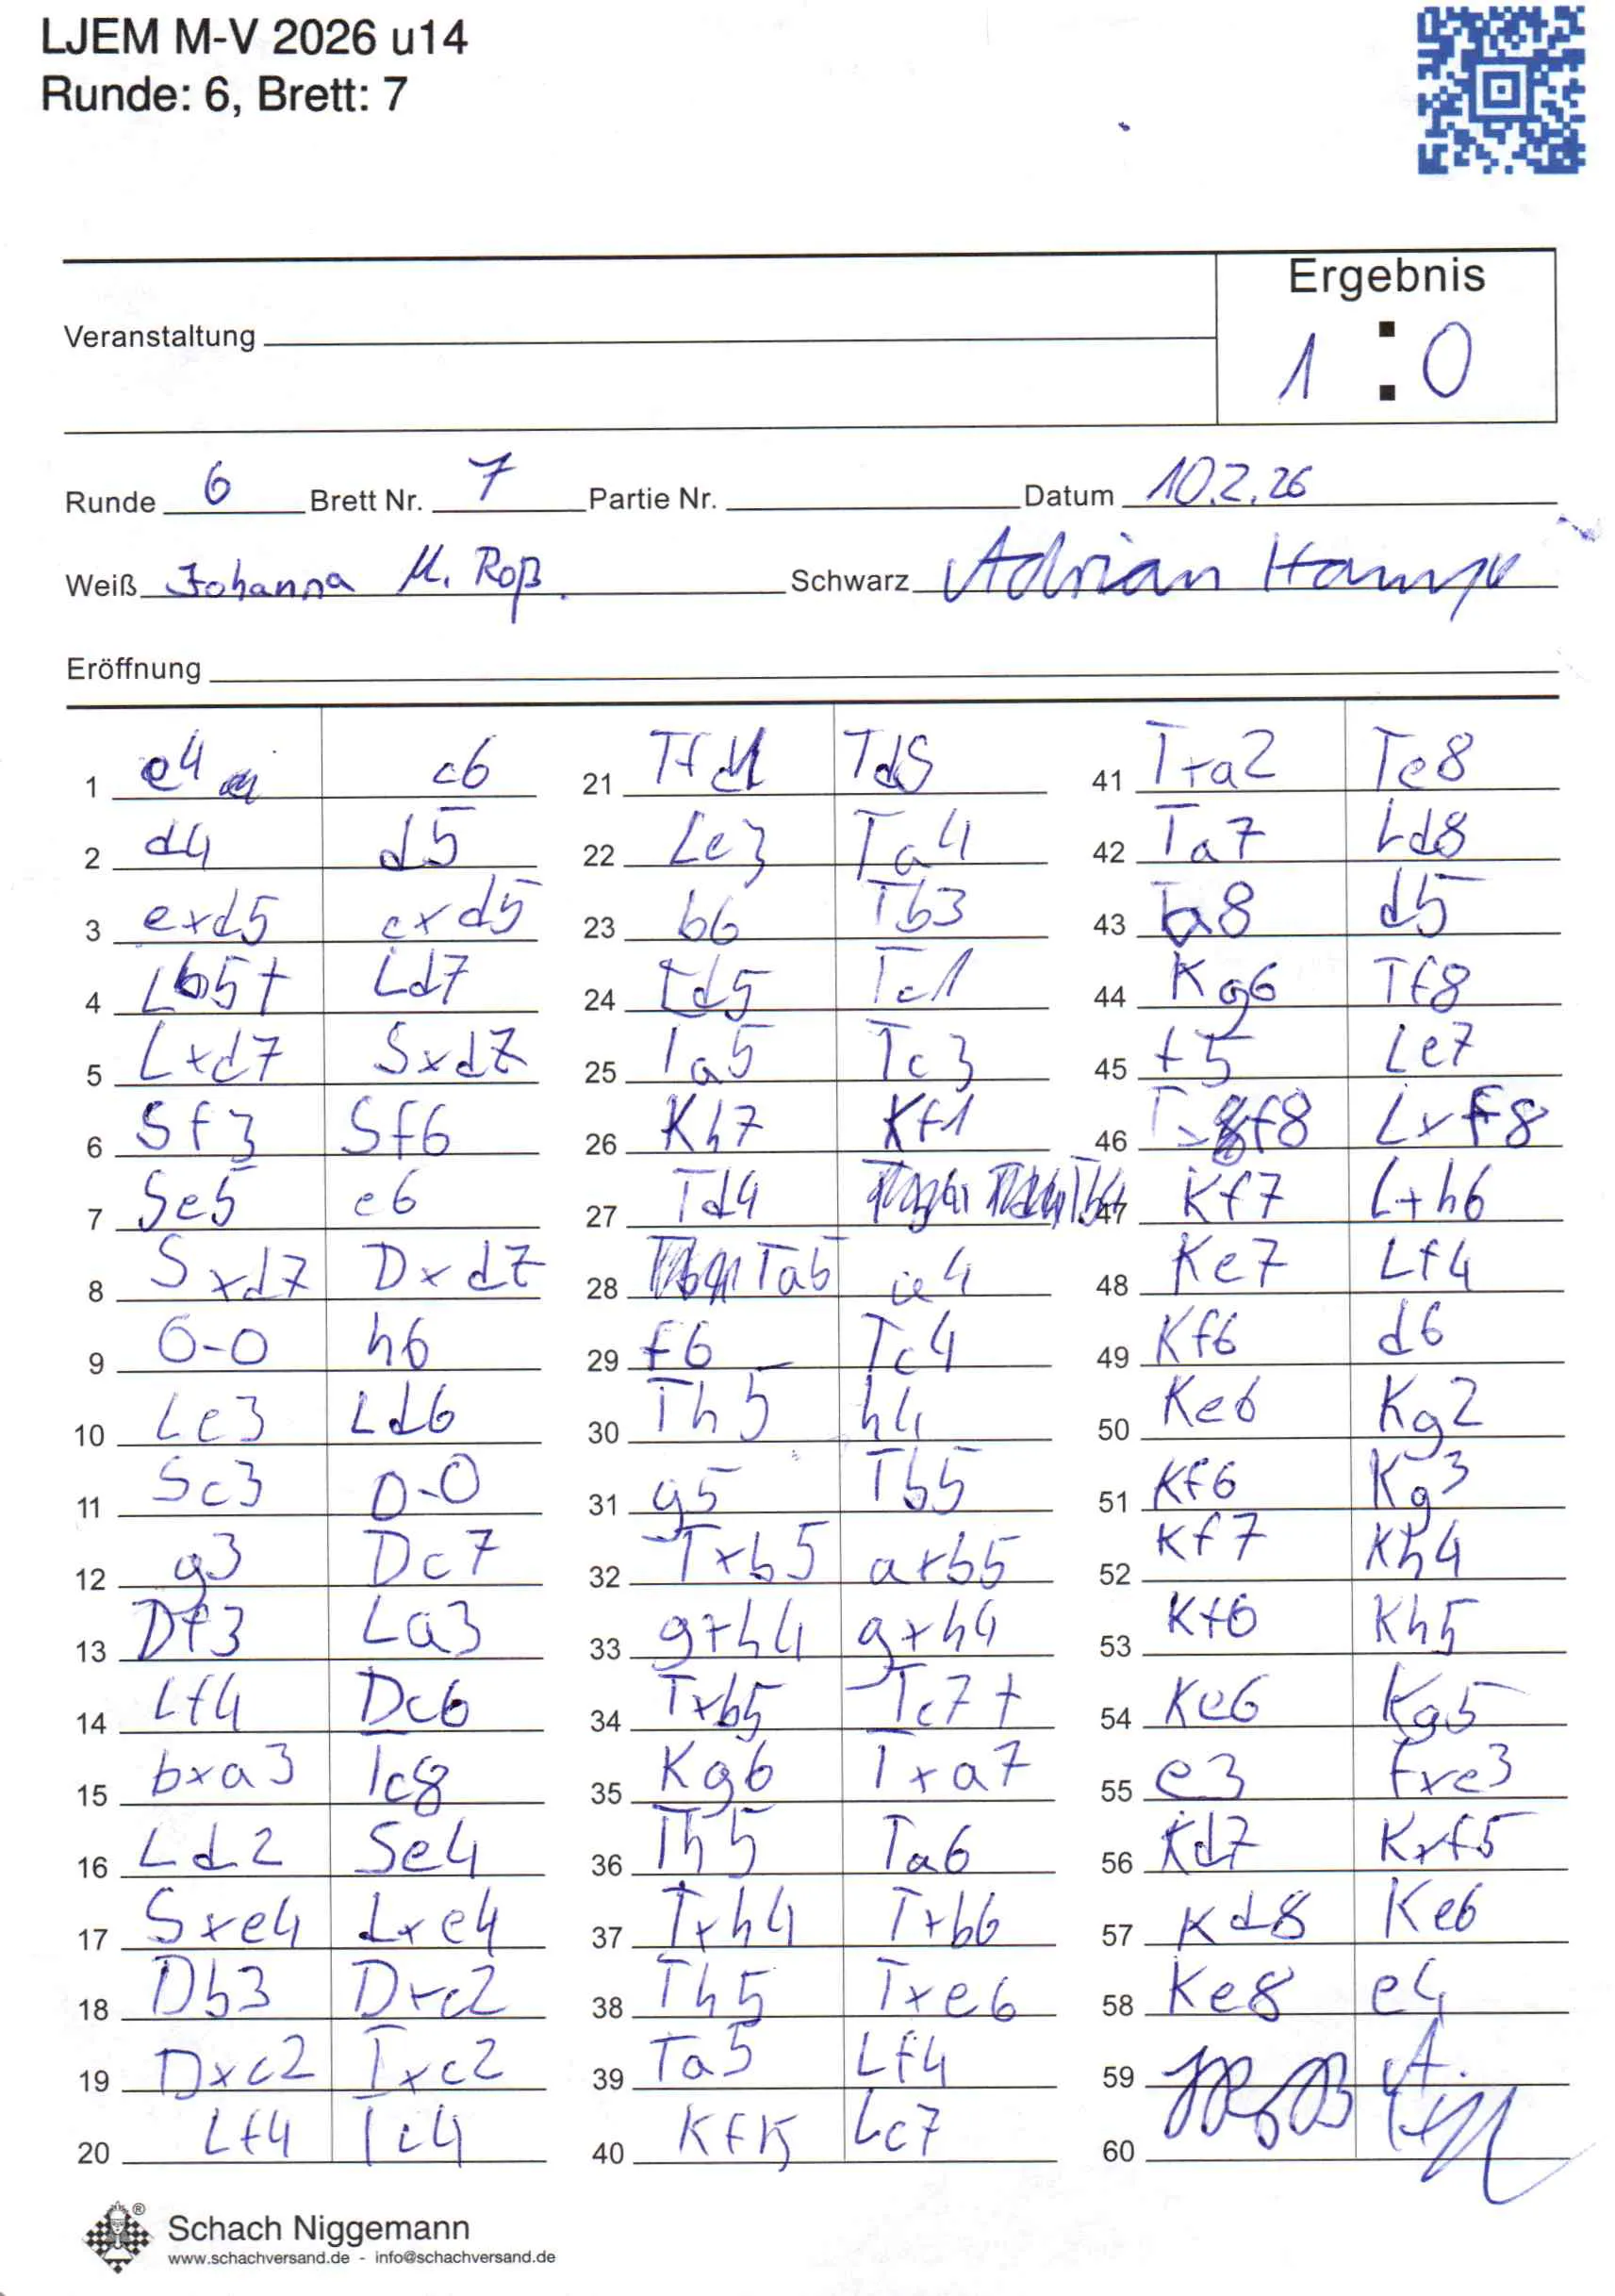 LJEM M-V 2026 u14
Runde: 6, Brett: 7
Ergebnis
Veranstaltung
1 : 0
Runde 6 Brett Nr. 7 Partie Nr. Datum 10.2.26
Weiß Johanna M. Roß. Schwarz Adrian
Eröffnung
1 e4 c6
2 d4 d5
3 exd5 cxd5
4 Lb5+ Ld7
5 Lxd7 Sxd7
6 Sf3 Sf6
7 Se5 e6
8 Sxd7 Dxd7
9 0-0 h6
10 Le3 Ld6
11 Sc3 0-0
12 g3 Dc7
13 Df3 La3
14 Lf4 Dc6
15 bxa3 Tc8
16 Ld2 Se4
17 Sxe4 Lxe4
18 Db3 Dxc2
19 Dxc2 Txc2
20 Lf4 Tc4
21 Tfd1 Td8
22 Le3 Ta4
23 b6 Tb3
24 Td5 Tc1
25 Ta5 Tc3
26 Kh7 Kf1
27 Td4
28 Ta5 e4
29 f6 Tc4
30 Th5 h4
31 g5 Tb5
32 Txb5 axb5
33 gxh4 gxh4
34 Txb5 Tc7+
35 Kg6 Txa7
36 Th5 Ta6
37 Txh4 Txb6
38 Th5 Txe6
39 Ta5 Lf4
40 Lc7
41 Txa2 Te8
42 Ta7 Ld8
43 Ta8 d5
44 Kg6 Tf8
45 f5 Le7
46 Lxf8
47 Kf7 Lxh6
48 Ke7 Lf4
49 Kf6 d6
50 Ke6 Kg2
51 Kf6 Kg3
52 Kf7 Kh4
53 Kf6 Kh5
54 Ke6 Kg5
55 e3 fxe3
56 Kd7 Kxf5
57 Kd8 Ke6
58 Ke8 e4
59
60
Schach Niggemann
www.schachversand.de - info@schachversand.de